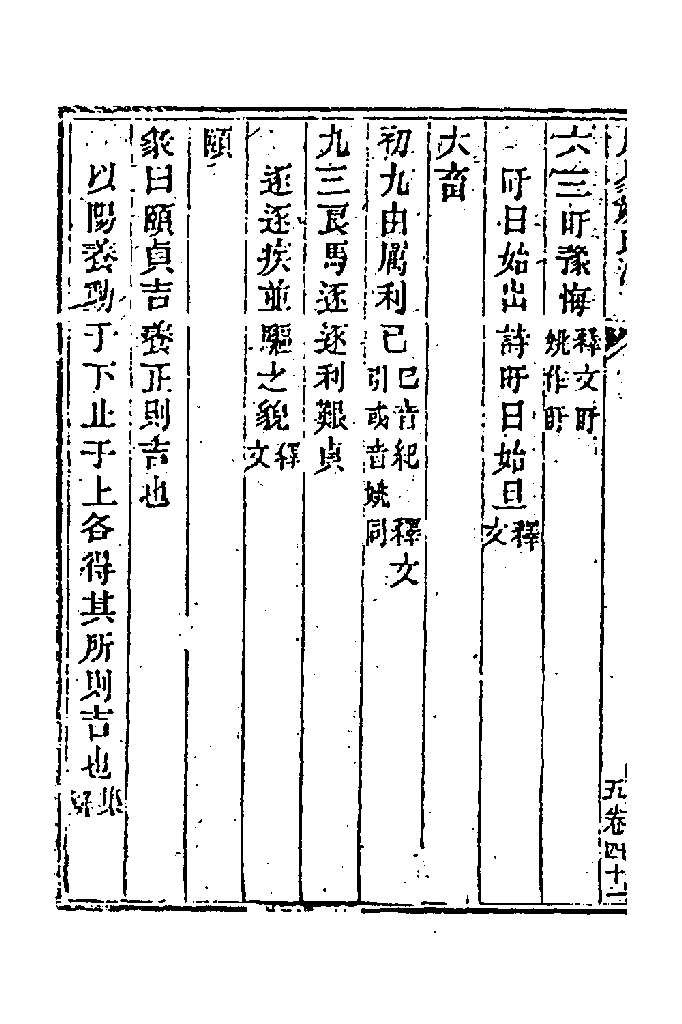 六三盱豫悔釋文盱姚作旴
旴日始出詩旴日始旦釋文
大畜
初九由厲利已已音紀 釋文引或音姚同
九三良馬逐逐利艱貞
逐逐疾並驅之貌釋文
頤
彖曰頤貞吉養正則吉也
以陽養動于下止于上各得其所則吉也集解
五卷四十一